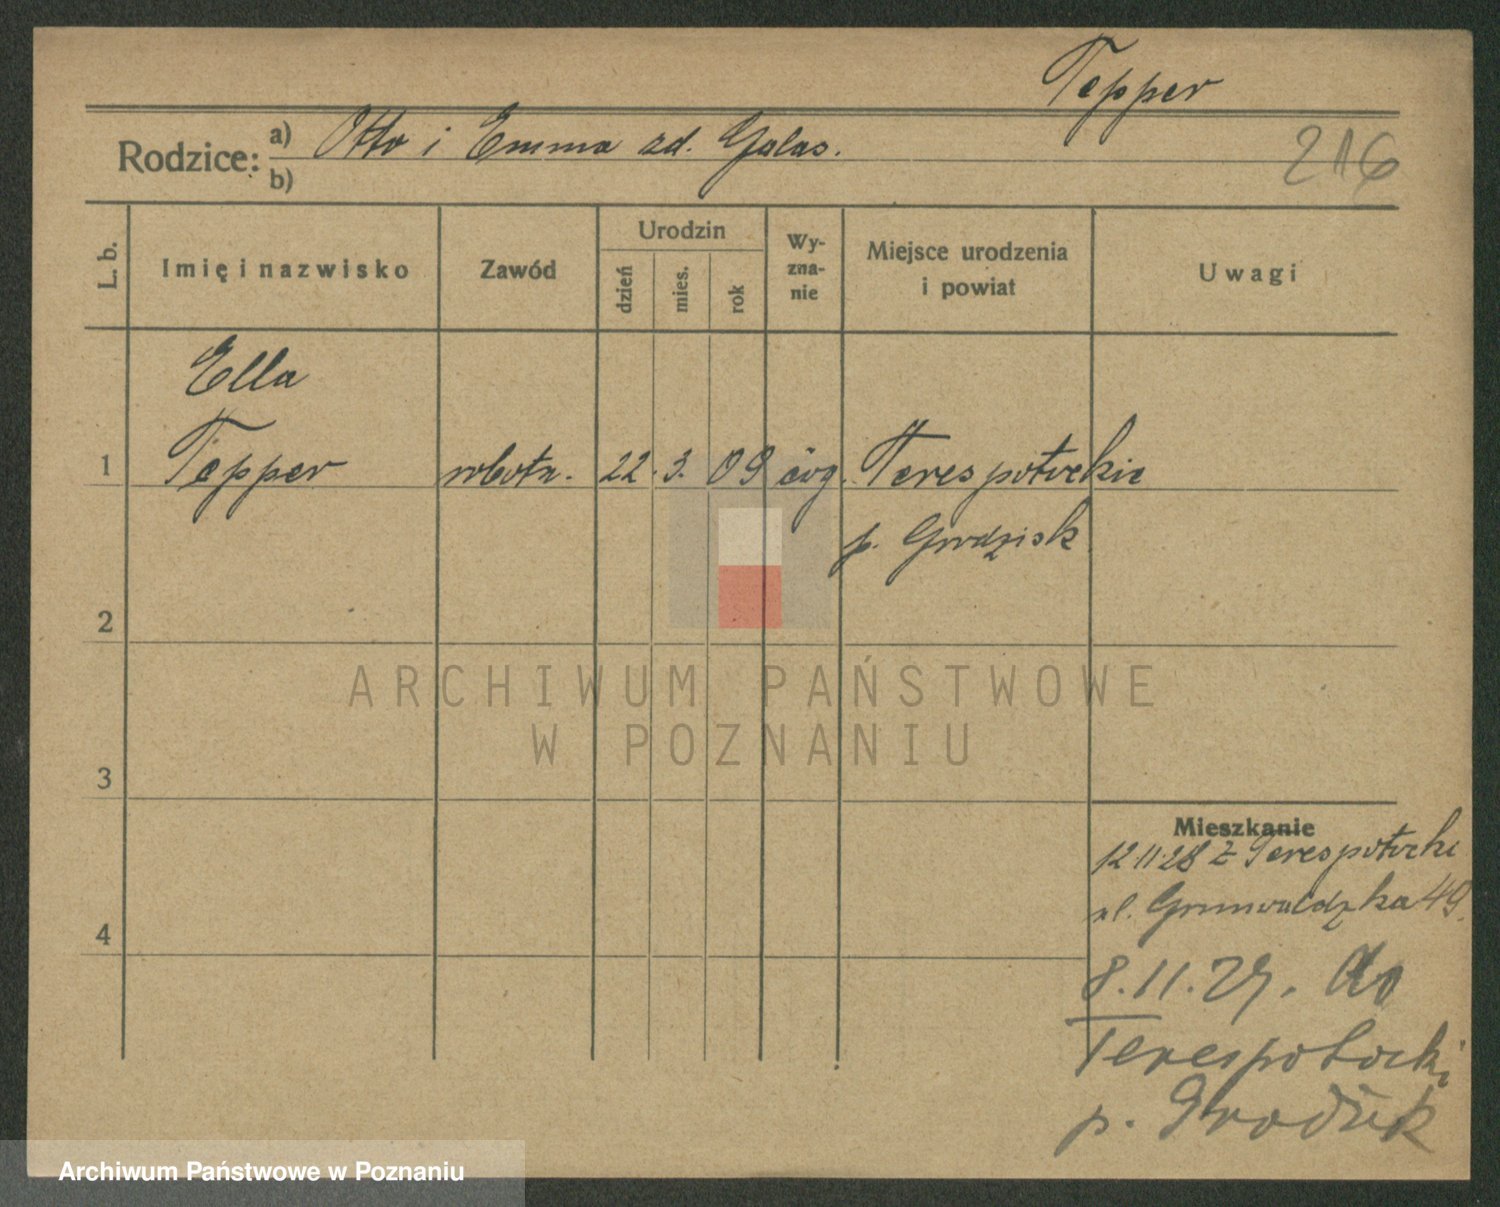 Tepper
Rodzice: a) Otto i Emma zd. Galas.
b)
216
L. b.
Imię i nazwisko
Zawód
Urodzin
dzień
mies.
rok
Wy-
zna-
nie
Miejsce urodzenia
i powiat
Uwagi
Ella
1 Tepper robotn. 22. 3. 09 ewg. Terespotockie
p. Grodzisk
2
ARCHIWUM PAŃSTWOWE
W POZNANIU
3
Mieszkanie
12.11.28 z Terespotocki
ul. Grunwaldzka 49.
4
8.11.29. do
Terespotocki
p. Grodzisk
Archiwum Państwowe w Poznaniu